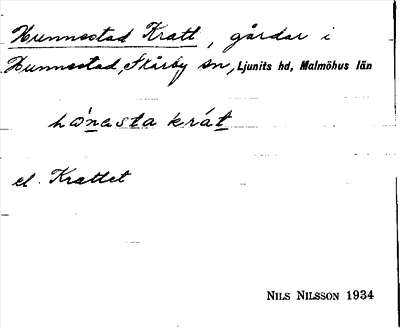 Hunnestad Kratt, gårdar i
Hunnestad, Skårby sn, Ljunits hd, Malmöhus län
hònesta krát
el. Krattet
NILS NILSSON 1934